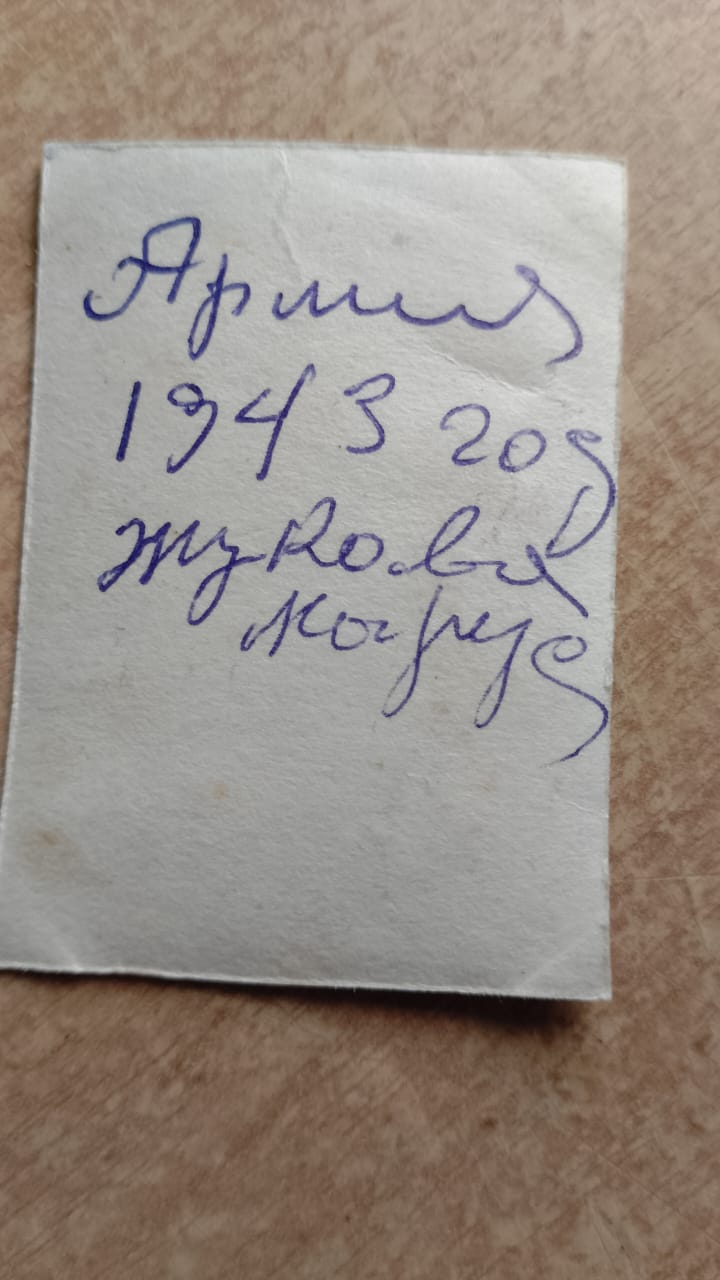 Армия
1943 год
Жукова